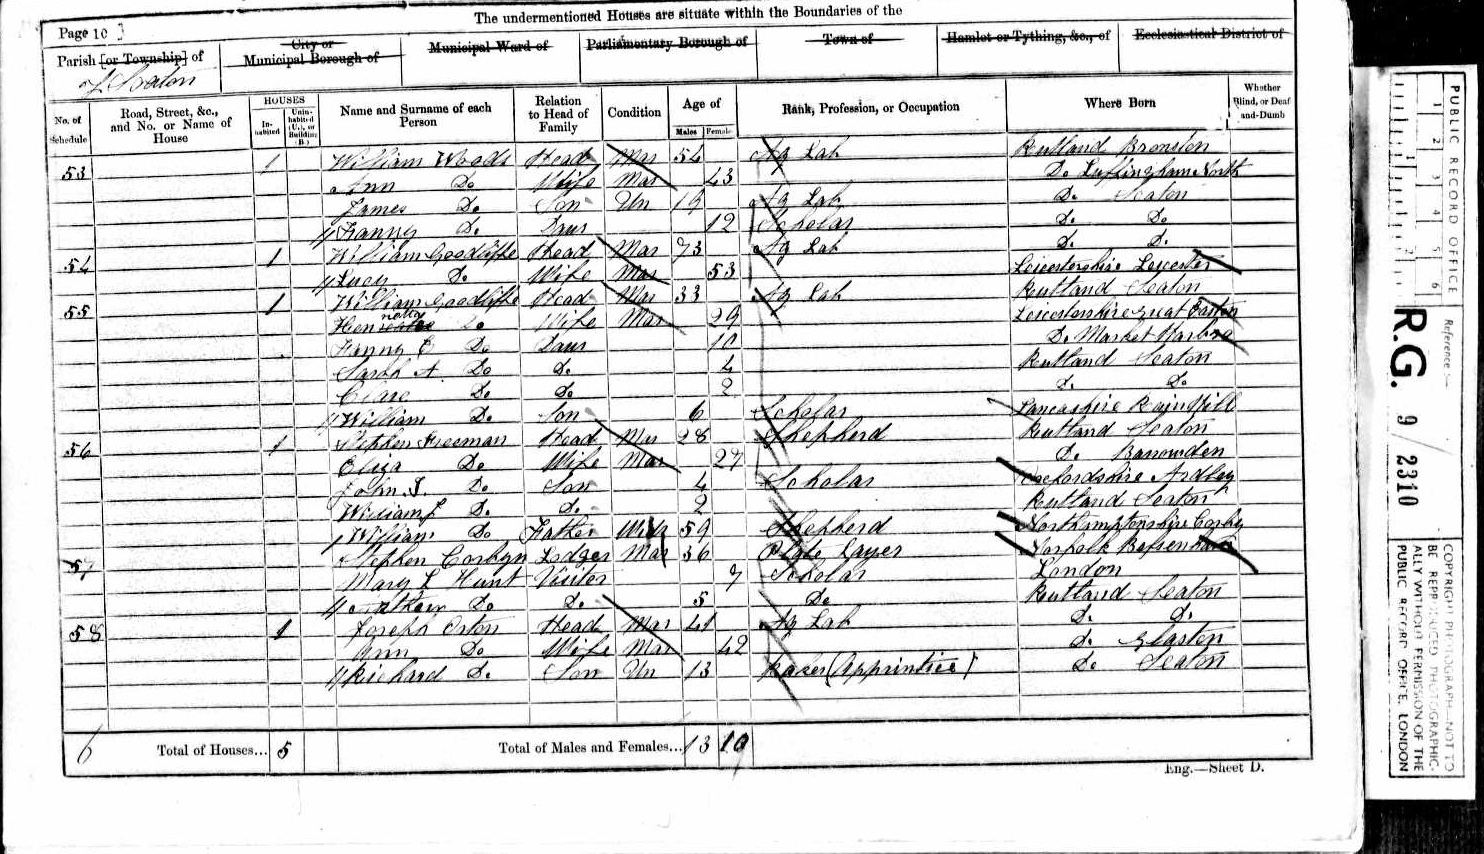 The undermentioned Houses are situate within the Boundaries of the
Page 10
Parish [or Township] of
City or Municipal Borough of
Municipal Ward of
Parliamentary Borough of
Town of
Hamlet or Tything, &c., of
Ecclesiastical District of
Seaton
No. of Schedule
Road, Street, &c., and No. or Name of House
HOUSES
Inhabited
Uninhabited (U.), or Building (B.)
Name and Surname of each Person
Relation to Head of Family
Condition
Age of
Males
Females
Rank, Profession, or Occupation
Where Born
Whether Blind, or Deaf-and-Dumb
53 1 William Woods Head Mar 54 Ag Lab Rutland Bronston
Ann Do Wife Mar 43 Do Luffingham North
James Do Son Un 19 Ag Lab Do Seaton
Fanny Do Daur 12 Scholar Do Do
54 1 William Goodliffe Head Mar 73 Ag Lab Do Do
Lucy Do Wife Mar 53 Leicestershire Leicester
55 1 William Goodliffe Head Mar 33 Ag Lab Rutland Seaton
Henrietta Do Wife Mar 29 Leicestershire Great Easton
Fanny E Do Daur 10 Do Market Harboro
Sarah A. Do Do 4 Rutland Seaton
Clara Do Do 2 Do Do
William Do Son 6 Scholar Lancashire Rainhill
56 1 Stephen Freeman Head Mar 28 Shepherd Rutland Seaton
Eliza Do Wife Mar 27 Do Barrowden
John T. Do Son 4 Scholar Oxfordshire Ardley
William J Do Do 2 Rutland Seaton
William Do Father Widr 59 Shepherd Northamptonshire Corby
57 Stephen Corbyn Lodger Mar 36 Plate Layer Norfolk
Mary L Hunt Visitor 7 Scholar London
Do Do 5 Do Rutland Seaton
58 1 Joseph Orton Head Mar 41 Ag Lab Do Do
Ann Do Wife Mar 42 Do Glaston
Richard Do Son Un 13 Baker (Apprentice) Do Seaton
6 Total of Houses... 5 Total of Males and Females... 13 10
Eng.—Sheet D.
PUBLIC RECORD OFFICE
1 2 3 4 5 6
1 2
Reference:-
R.G. 9/2310
COPYRIGHT PHOTOGRAPH - NOT TO BE REPRODUCED PHOTOGRAPHICALLY WITHOUT PERMISSION OF THE PUBLIC RECORD OFFICE, LONDON